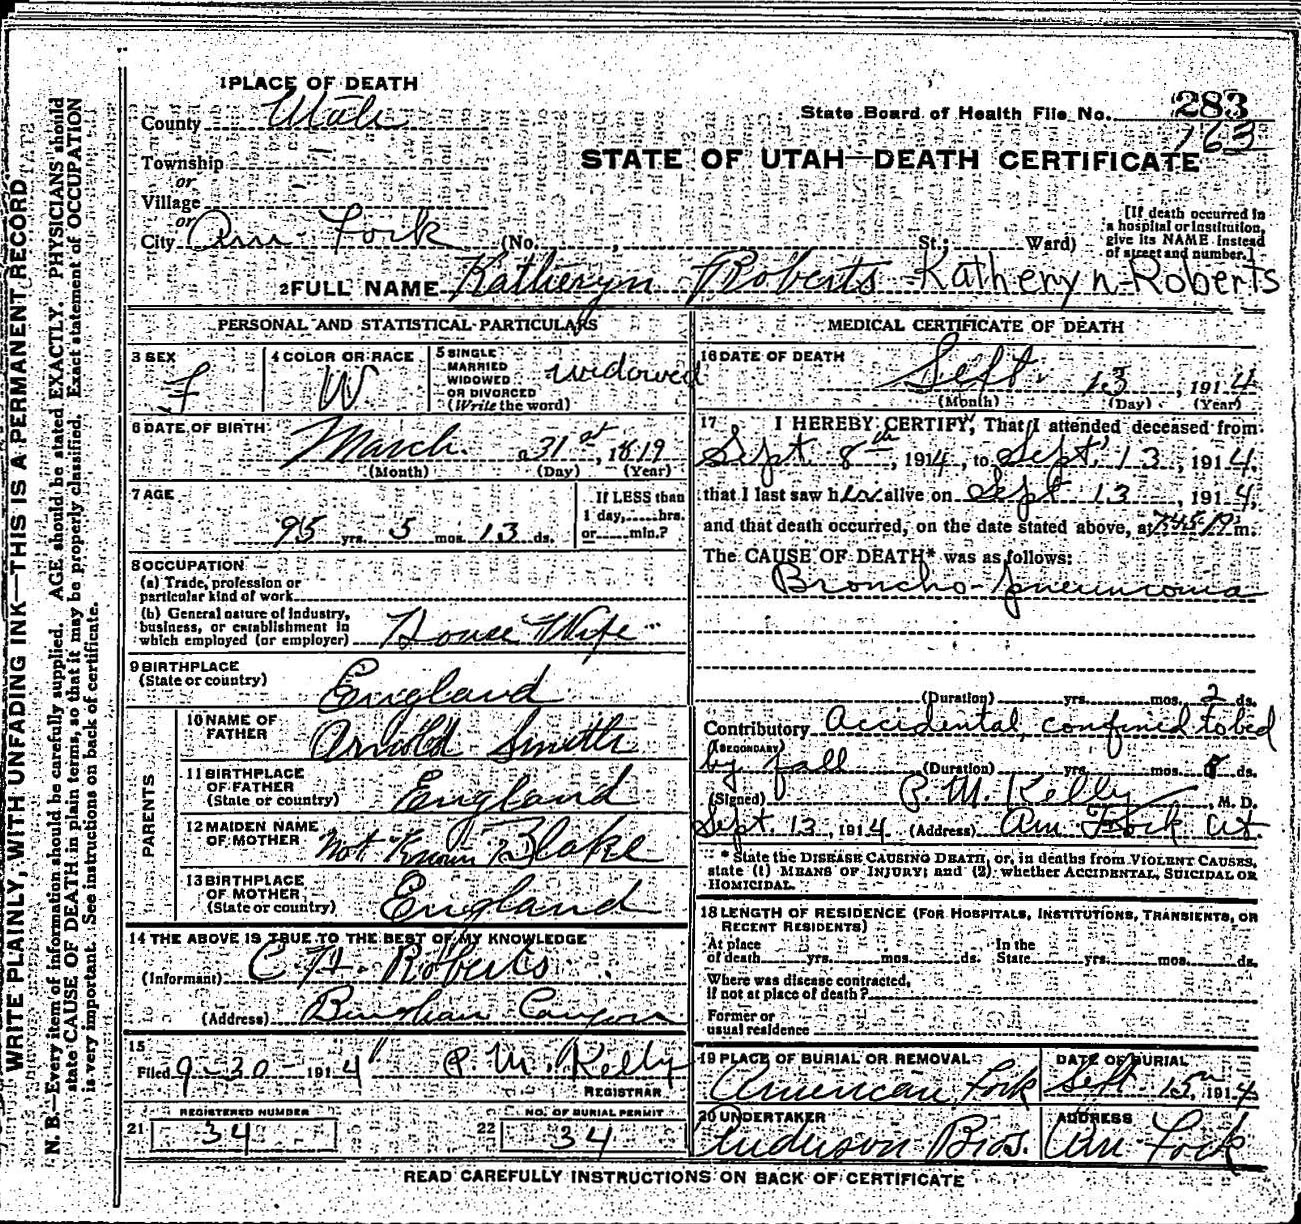 1 PLACE OF DEATH
County Utah
State Board of Health File No. 283
163
Township
or
Village
or
City Am Fork (No. , St.; Ward)
STATE OF UTAH—DEATH CERTIFICATE
[If death occurred in
a hospital or institution,
give its NAME instead
of street and number.]
2 FULL NAME Katheryn Roberts Katheryn Roberts
PERSONAL AND STATISTICAL PARTICULARS
3 SEX F
4 COLOR OR RACE W
5 SINGLE
MARRIED
WIDOWED
OR DIVORCED
(Write the word) widowed
6 DATE OF BIRTH
March 31st, 1819
(Month) (Day) (Year)
7 AGE
95 yrs. 5 mos. 13 ds.
If LESS than
1 day, hrs.
or min.?
8 OCCUPATION
(a) Trade, profession or
particular kind of work
(b) General nature of industry,
business, or establishment in
which employed (or employer) House Wife
9 BIRTHPLACE
(State or country) England
PARENTS
10 NAME OF
FATHER Arnold Smith
11 BIRTHPLACE
OF FATHER
(State or country) England
12 MAIDEN NAME
OF MOTHER Not Known Blake
13 BIRTHPLACE
OF MOTHER
(State or country) England
14 THE ABOVE IS TRUE TO THE BEST OF MY KNOWLEDGE
(Informant) C H. Roberts
(Address) Bingham Canyon
15
Filed 9-30-1914 P. M. Kelly
REGISTRAR
REGISTERED NUMBER
21 34
NO. OF BURIAL PERMIT
22 34
MEDICAL CERTIFICATE OF DEATH
16 DATE OF DEATH
Sept. 13, 1914
(Month) (Day) (Year)
17 I HEREBY CERTIFY, That I attended deceased from
Sept. 8th, 1914, to Sept. 13, 1914,
that I last saw her alive on Sept 13, 1914,
and that death occurred, on the date stated above, at m.
The CAUSE OF DEATH* was as follows:
Broncho-pneumonia
(Duration) yrs. mos. 2 ds.
Contributory Accidental, confined to bed
(SECONDARY)
by fall (Duration) yrs. mos. 8 ds.
(Signed) P. M. Kelly, M. D.
Sept. 13, 1914 (Address) Am Fork Ut.
* State the DISEASE CAUSING DEATH, or, in deaths from VIOLENT CAUSES,
state (1) MEANS OF INJURY; and (2) whether ACCIDENTAL, SUICIDAL OR
HOMICIDAL.
18 LENGTH OF RESIDENCE (FOR HOSPITALS, INSTITUTIONS, TRANSIENTS, OR
RECENT RESIDENTS)
At place
of death yrs. mos. ds.
In the
State yrs. mos. ds.
Where was disease contracted,
if not at place of death?
Former or
usual residence
19 PLACE OF BURIAL OR REMOVAL
American Fork
DATE OF BURIAL
Sept 15, 1914
20 UNDERTAKER
Anderson Bros.
ADDRESS
Am Fork
READ CAREFULLY INSTRUCTIONS ON BACK OF CERTIFICATE
WRITE PLAINLY, WITH UNFADING INK—THIS IS A PERMANENT RECORD
N. B.—Every item of information should be carefully supplied. AGE should be stated EXACTLY. PHYSICIANS should
state CAUSE OF DEATH in plain terms, so that it may be properly classified. Exact statement of OCCUPATION
is very important. See instructions on back of certificate.